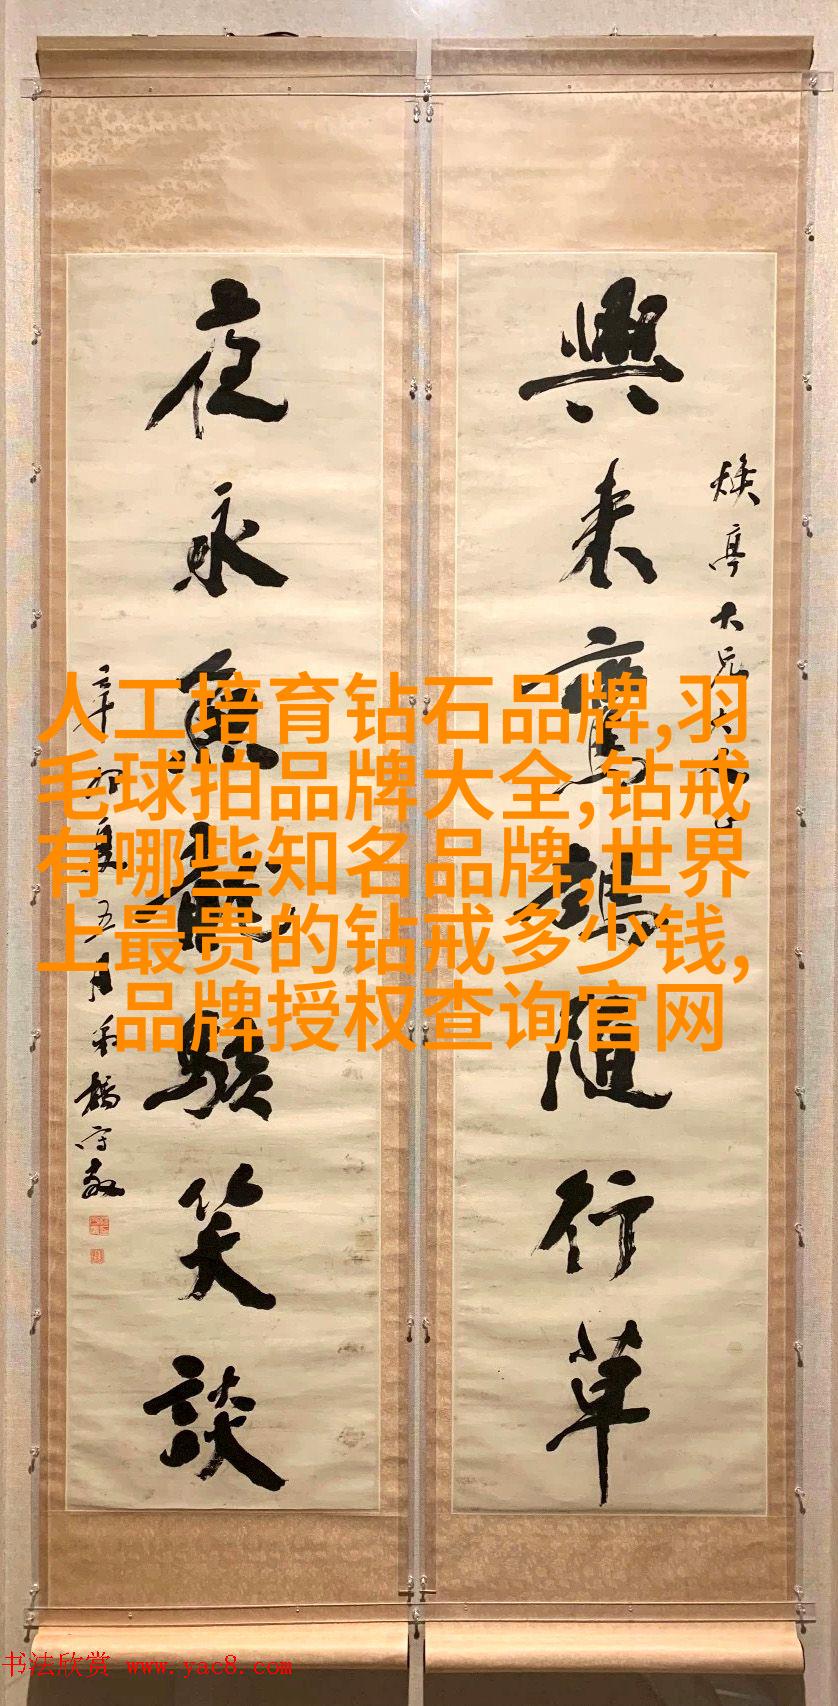 煥亭大兄大
興來鸞鵠隨行草
夜永魚龍駭笑談
辛卯夏五月楊守敬
人工培育钻石品牌,羽
毛球拍品牌大全,钻戒
有哪些知名品牌,世界
上最贵的钻戒多少钱,
品牌授权查询官网
书法欣赏 www.yac8.com